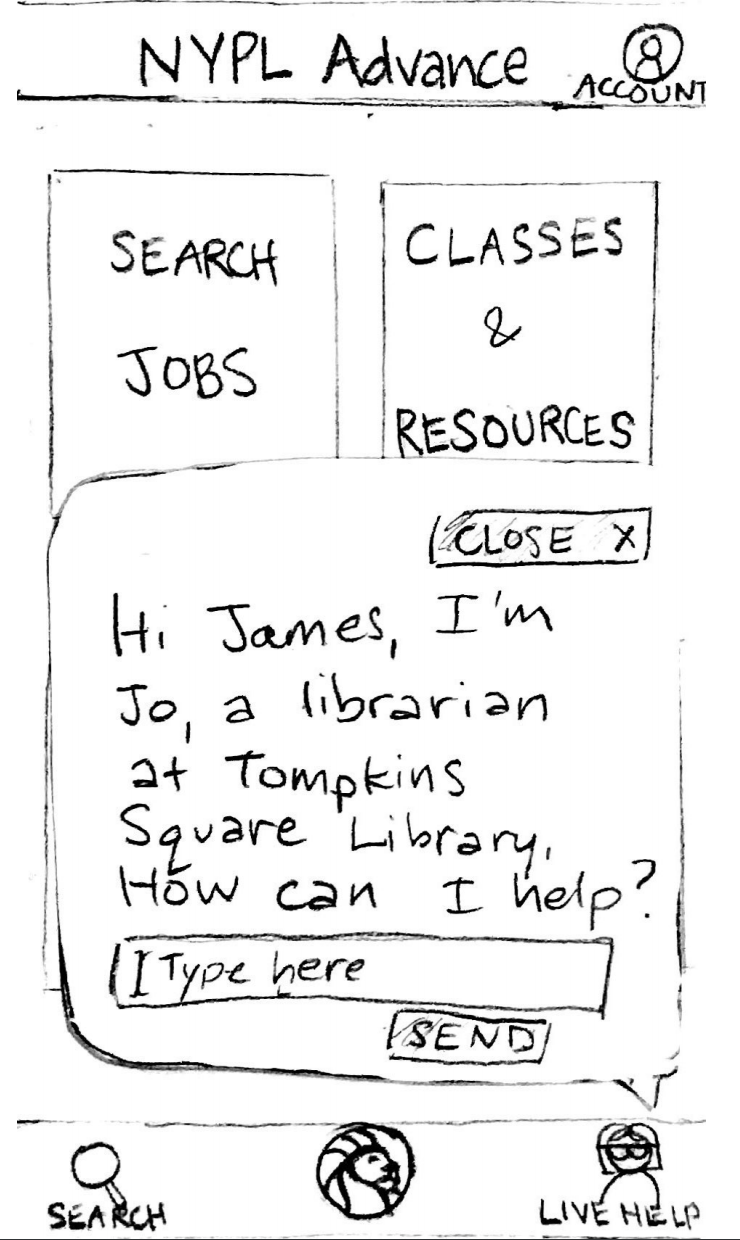 NYPL Advance
ACCOUNT
SEARCH
JOBS
CLASSES
&
RESOURCES
CLOSE X
Hi James, I'm
Jo, a librarian
at Tompkins
Square Library.
How can I help?
Type here
SEND
SEARCH
LIVE HELP